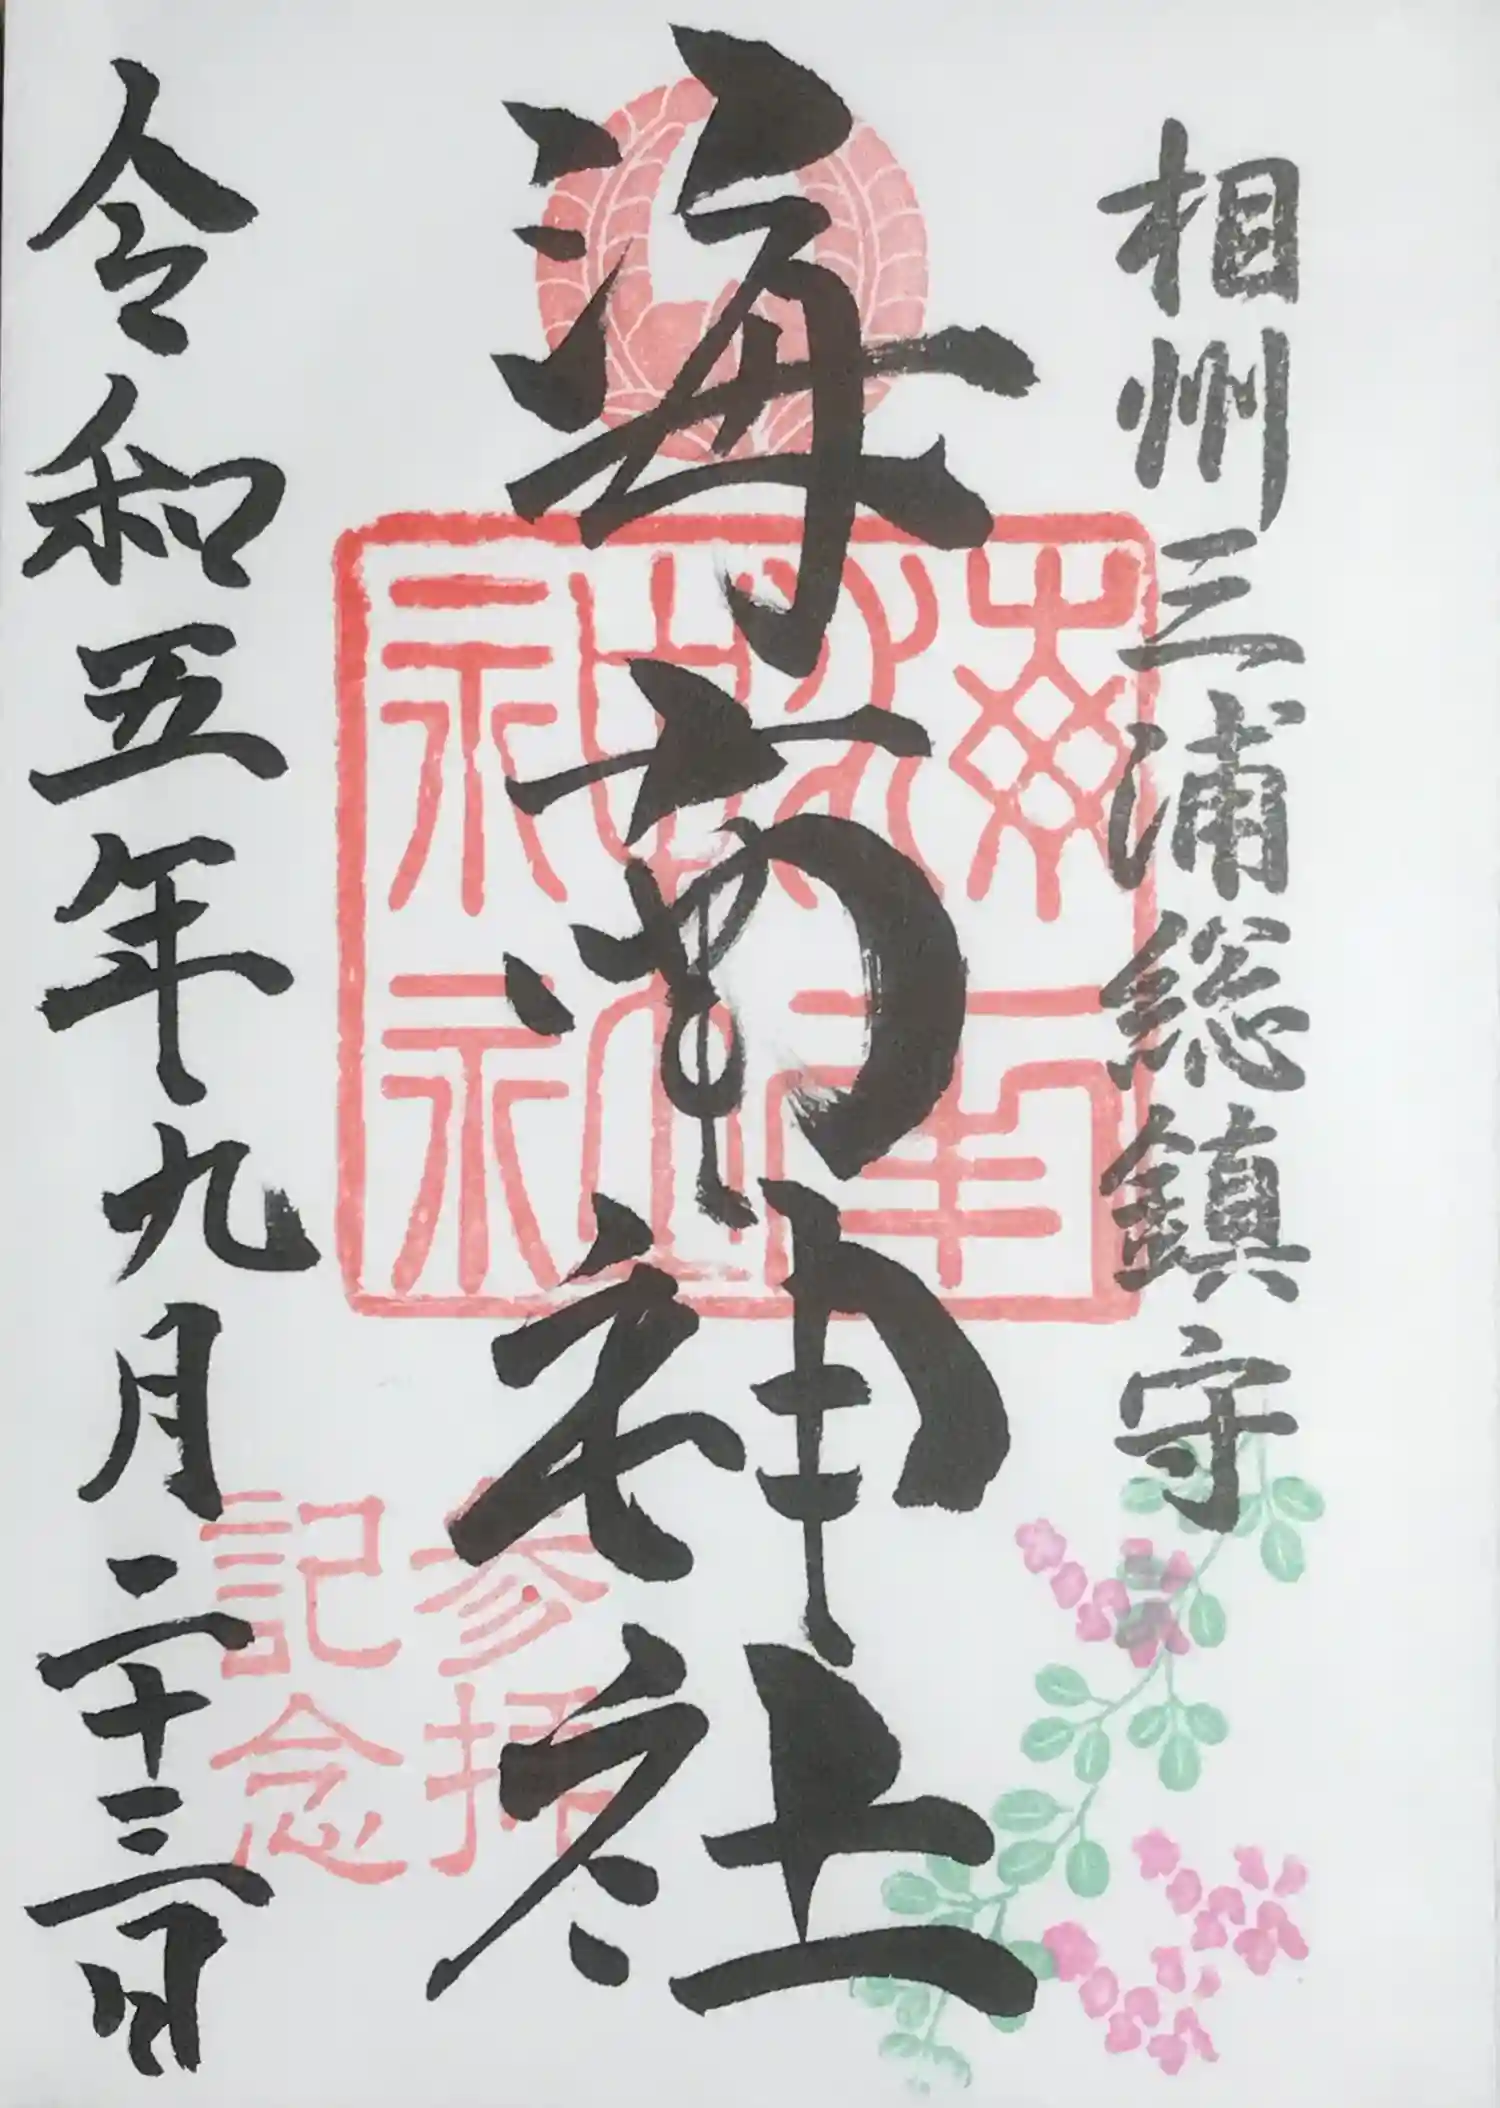 相州三浦総鎮守
海南神社
参拝
記念
令和五年九月二十三日